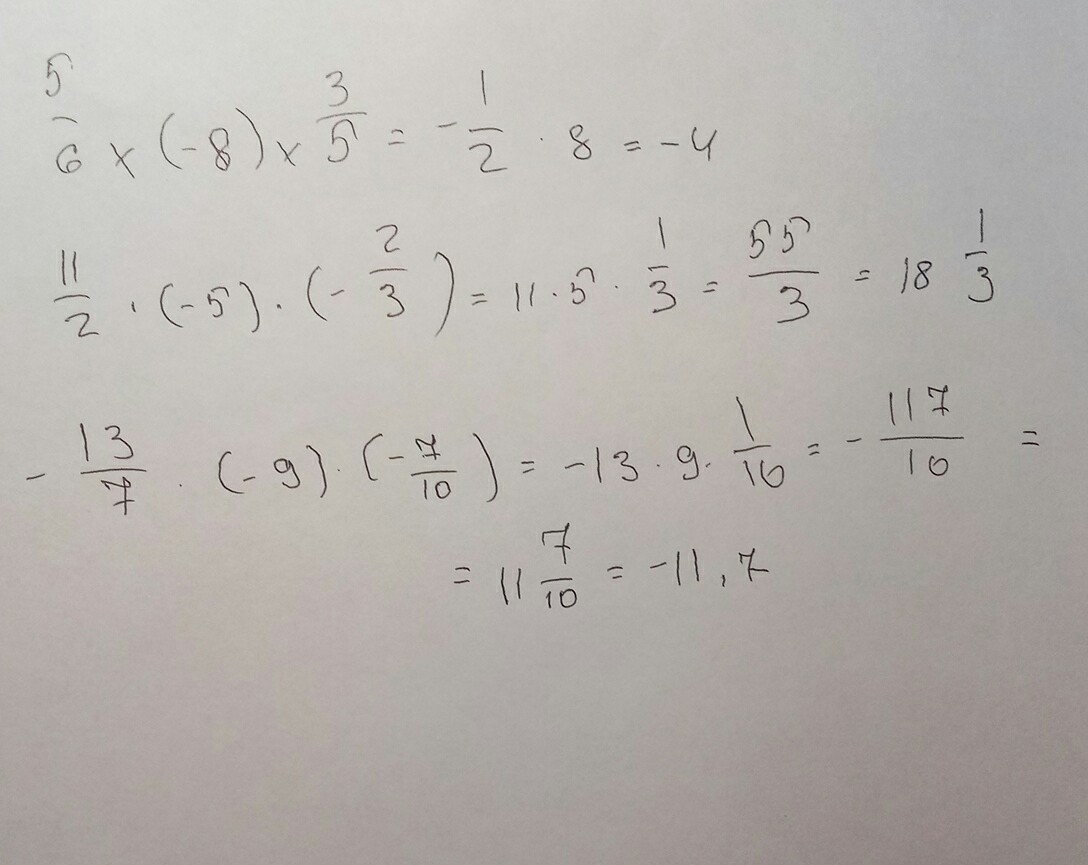 5/6 × (-8) × 3/5 = -1/2 · 8 = -4
11/2 · (-5) · (-2/3) = 11 · 5 · 1/3 = 55/3 = 18 1/3
-13/7 · (-9) · (-7/10) = -13 · 9 · 1/10 = -117/10 =
= 11 7/10 = -11,7